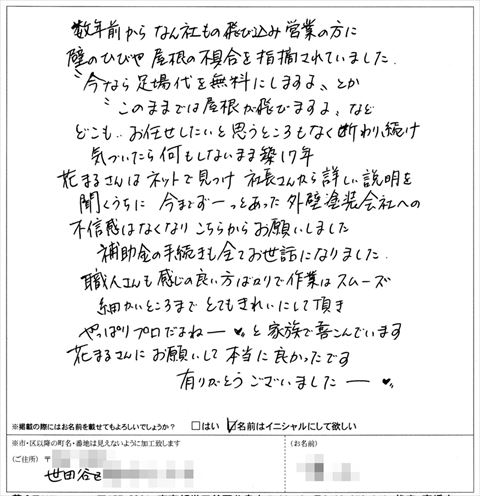 数年前から なん社もの飛び込み営業の方に
壁のひびや 屋根の不具合を指摘されていました.
"今なら足場代を無料にしますよ〟とか
"このままでは屋根が飛びますよ〟など
どこも‥お任せしたいと思うところもなく断わり続け
気づいたら何もしないまま築17年
花まるさんはネットで見つけ 社長さんから詳しい説明を
聞くうちに 今までずーっとあった外壁塗装会社への
不信感はなくなり こちらからお願いしました
補助金の手続きも全てお世話になりました.
職人さんも感じの良い方ばかりで作業はスムーズ
細かいところまで とてもきれいにして頂き
やっぱりプロだよねー♥と家族で喜こんでいます
花まるさんにお願いして本当に良かったです
有りがとうございましたー ♥
※掲載の際にはお名前を載せてもよろしいでしょうか? □はい ☑名前はイニシャルにして欲しい
※市・区以降の町名・番地は見えないように加工致します
(ご住所) 〒
(お名前)
世田谷区